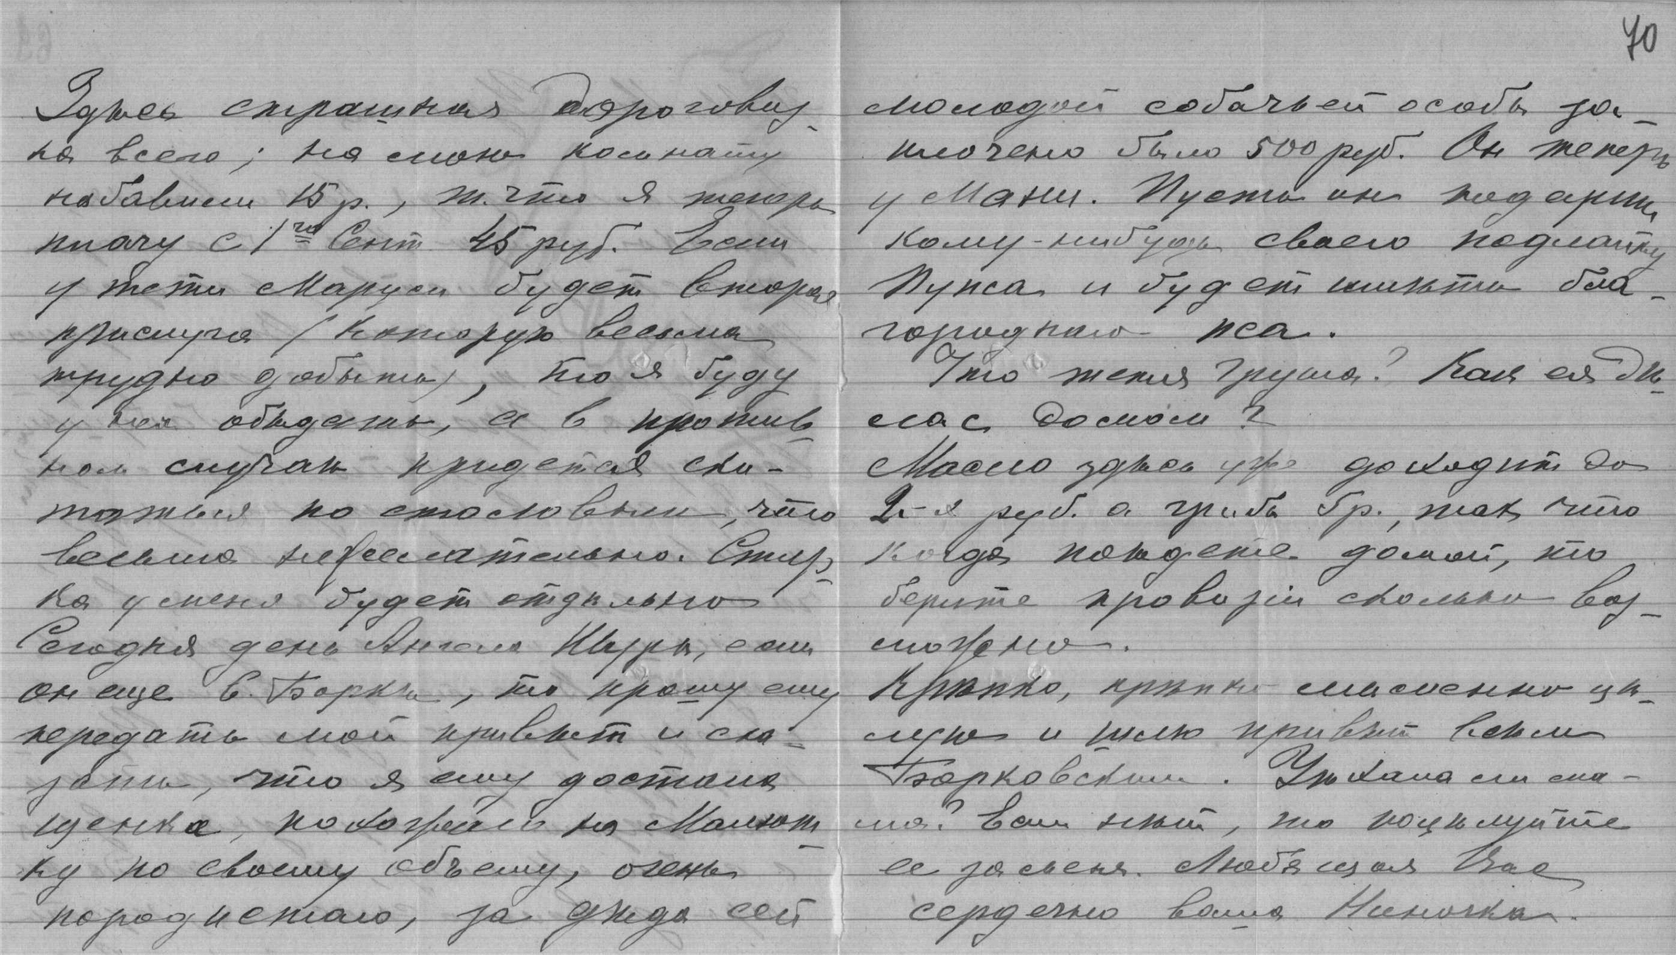 70
Здѣсь страшная дороговиз-
на всего; на мою комнату
набавили 15 р., т. что я теперь
плачу с 1го Сент 45 руб. Если
у тети Маруси будет вторая
прислуга (которую весьма
трудно добыть), то я буду
у них обѣдать, а в против-
ном случаѣ придется ски-
таться по столовым, что
весьма нежелательно. Стир-
ка у меня будет отдѣльно
Сегодня день Ангела Шуры, если
он еще в Борках, то прошу ему
передать мой привѣт и ска-
зать, что я ему достала
щенка, похожаго на Малют-
ку по своему объему, очень
породистаго, за дѣда сей
молодой собачьей особы за-
плочено было 500 руб. Он теперь
у Мани. Пусть он подарит
кому-нибудь своего подлатку
Пупса и будет имѣть бла-
городнаго пса.
Что тетя Груша? Как ея дѣ-
ла с домом?
Масло здѣсь уже доходит до
2-х руб. а грибы 5 р., так что
когда поѣдете домой, то
берите провизіи сколько воз-
можно.
Крѣпко, крѣпко мысленно цѣ-
лую и шлю привѣт всѣм
Борковским. Уѣхала ли ма-
ма? Если нѣт, то поцѣлуйте
ее за меня. Любящая Вас
сердечно ваша Ниночка.